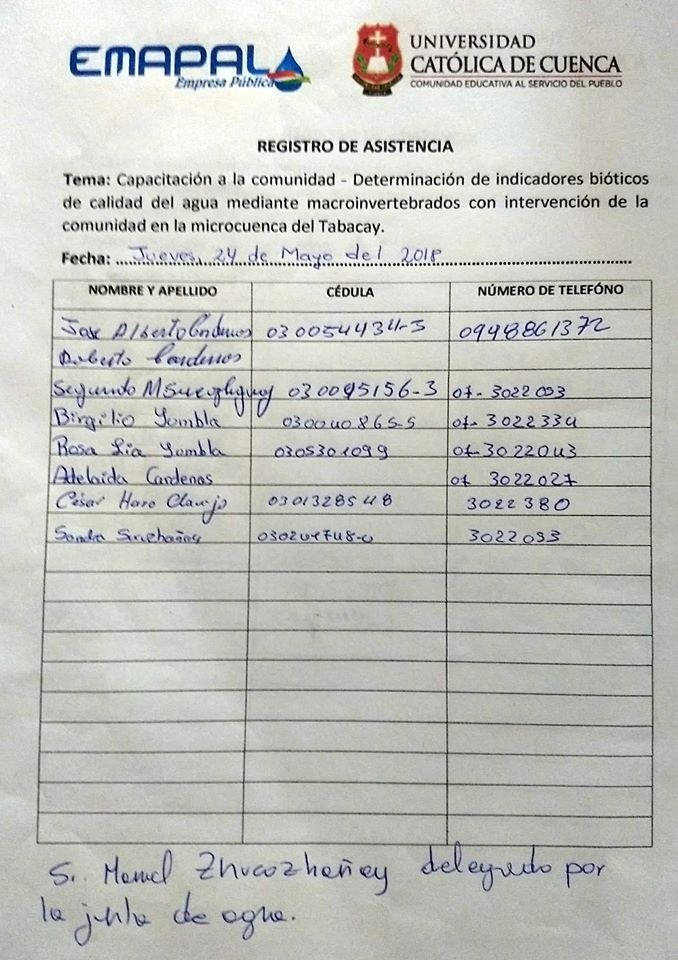 EMAPAL
Empresa Pública
UNIVERSIDAD
CATÓLICA DE CUENCA
COMUNIDAD EDUCATIVA AL SERVICIO DEL PUEBLO
REGISTRO DE ASISTENCIA
Tema: Capacitación a la comunidad - Determinación de indicadores bióticos
de calidad del agua mediante macroinvertebrados con intervención de la
comunidad en la microcuenca del Tabacay.
Fecha: Jueves, 24 de Mayo del 2018
NOMBRE Y APELLIDO CÉDULA NÚMERO DE TELEFÓNO
Jose Alberto Cardenas 030054434-5 0998861372
Roberto Cardenas
Segundo M 030095156-3 07-3022093
Birgilio Yumbla 030040865-5 07-3022334
Rosa Lia Yumbla 0305301099 07-3022043
Adelaida Cardenas 07 3022027
César Haro Clavijo 0301328548 3022380
Sandra 3022093
Sr. Manuel Zhucozhañay delegado por
la junta de agua.